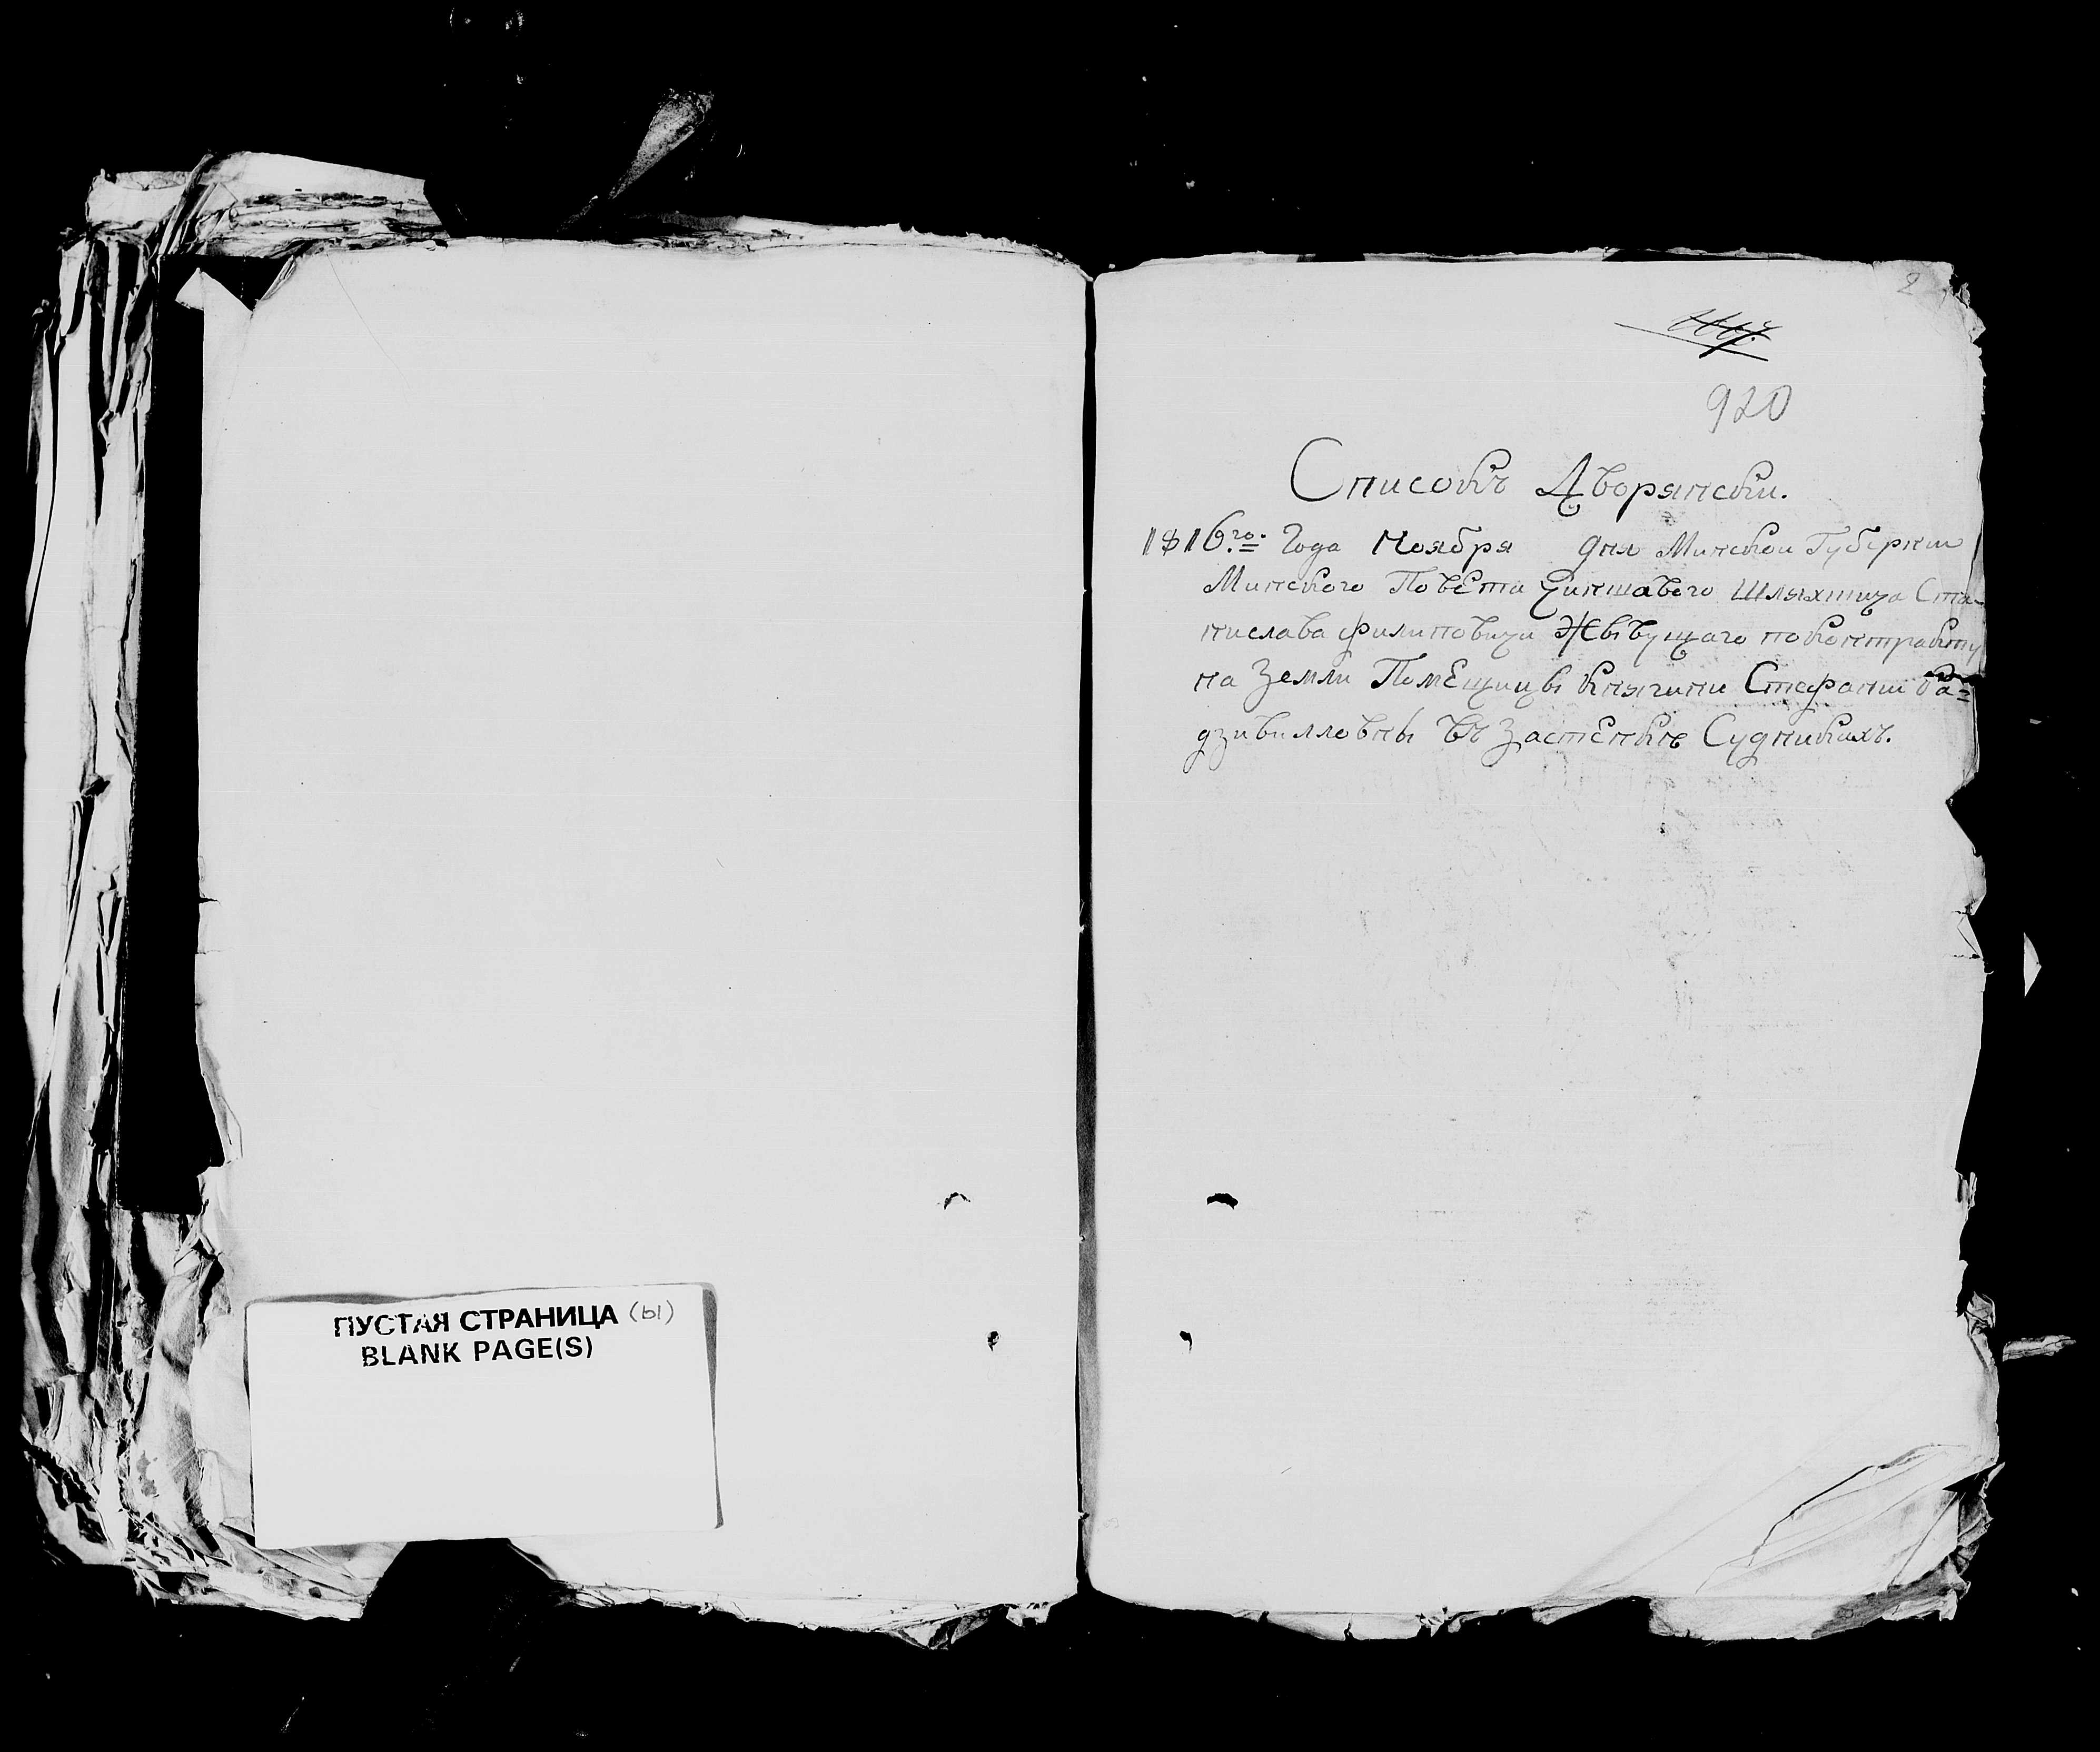 ПУСТАЯ СТРАНИЦА (ы)
BLANK PAGE(S)
2
920
Списокъ Дворянски.
1816.го Года Ноября дня Минской Губернии
Минского Повѣта Чиншавого Шляхтича Ста-
нислава Филиповича Жывущаго по контракту
на Земли Помещицы Княгини Стефании Ра=
дзивилловны въ Застенкѣ Судниках.